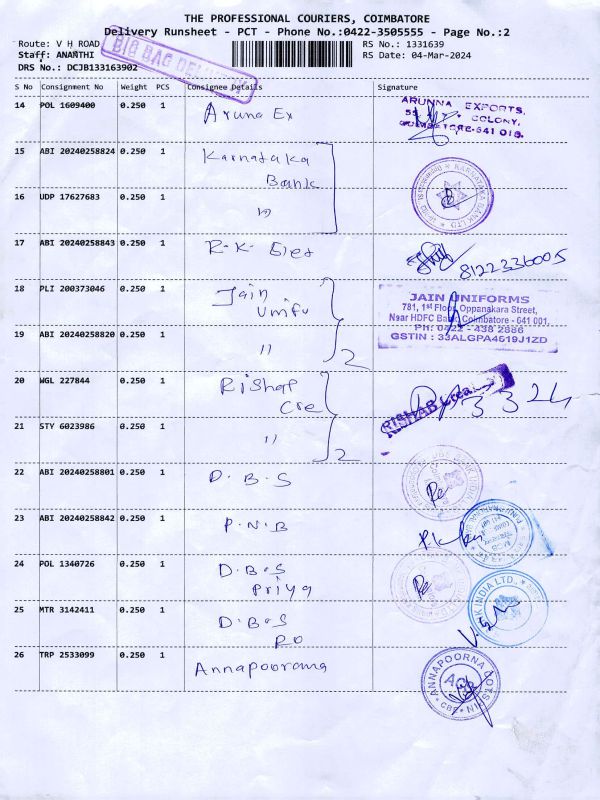 THE PROFESSIONAL COURIERS, COIMBATORE
Delivery Runsheet - PCT - Phone No.:0422-3505555 - Page No.:2
Route: V H ROAD
RS No.: 1331639
Staff: ANANTHI
RS Date: 04-Mar-2024
DRS No.: DCJB133163902
BIG BAG DELIVERY
S No Consignment No Weight PCS Consignee Details Signature
14 POL 1609400 0.250 1 Aruna Ex
ARUNNA EXPORTS,
COLONY,
COIMBATORE-641 018.
15 ABI 20240258824 0.250 1 Karnataka
Bank
KARNATAKA BANK LTD
16 UDP 17627683 0.250 1 "
17 ABI 20240258843 0.250 1 R.K. Elect
8122336005
18 PLI 200373046 0.250 1 Jain
Unifo
JAIN UNIFORMS
781, 1st Floor, Oppanakara Street,
Near HDFC Bank, Coimbatore - 641 001.
Ph: 0422 - 438 2886
GSTIN : 33ALGPA4619J1ZD
19 ABI 20240258820 0.250 1 "
2
20 WGL 227844 0.250 1 Rishap
Cre
RISHAB Crea
3 24
21 STY 6023986 0.250 1 "
2
22 ABI 20240258801 0.250 1 D.B.S
23 ABI 20240258842 0.250 1 P.N.B
24 POL 1340726 0.250 1 D.B.S
Priya
25 MTR 3142411 0.250 1 D.B.S
RO
K INDIA LTD.
26 TRP 2533099 0.250 1 Annapoorana
ANNAPOORNA
CBE